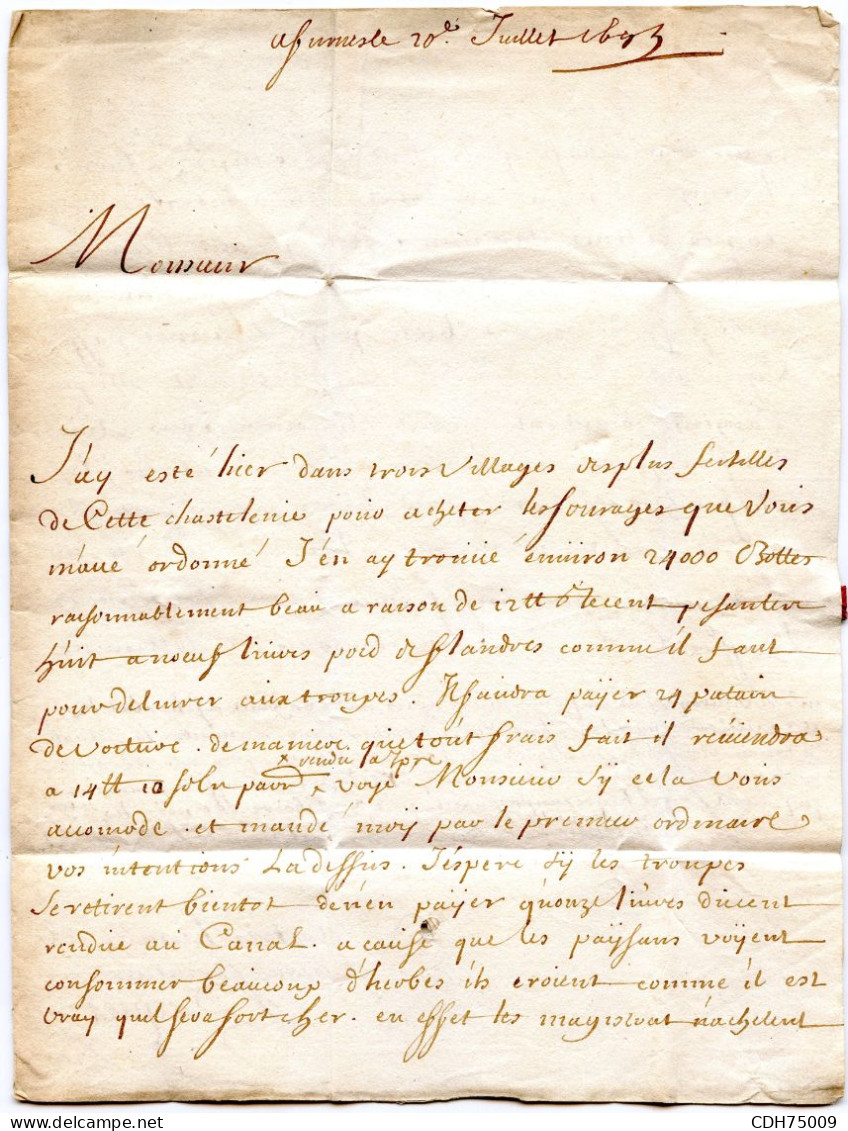 afurnes le 20e Juillet 1693
Monsieur
J'ay esté hier dans trois Villages des plus fertilles
de Cette chastelenie pour acheter les fourages que Vous
m'avé ordonné J'en ay trouvé environ 24000 Bottes
raisonnablement beau a raison de 12tt le cent pesant
huit a noeuf livres poid de flandres comme il faut
pour delivrer aux troupes. Il faudra paÿer 24 patar
de voiture. de maniere que tout frais fait il reviendra
x rendu a Ipre
a 14tt 10 sols par x voÿé Monsieur sÿ cela vous
accomode. et mandé moÿ par le premier ordinaire
vos intentions La dessus. J'éspere sÿ les troupes
se retirent bientot de n'en paÿer qu'onze livres du cent
rendue au Canal. a cause que les paÿsans voÿent
consommer beaucoup d'herbes ils croient comme il est
vray quil sera fort cher. en effet les magistrat n'achetent
CDH75009